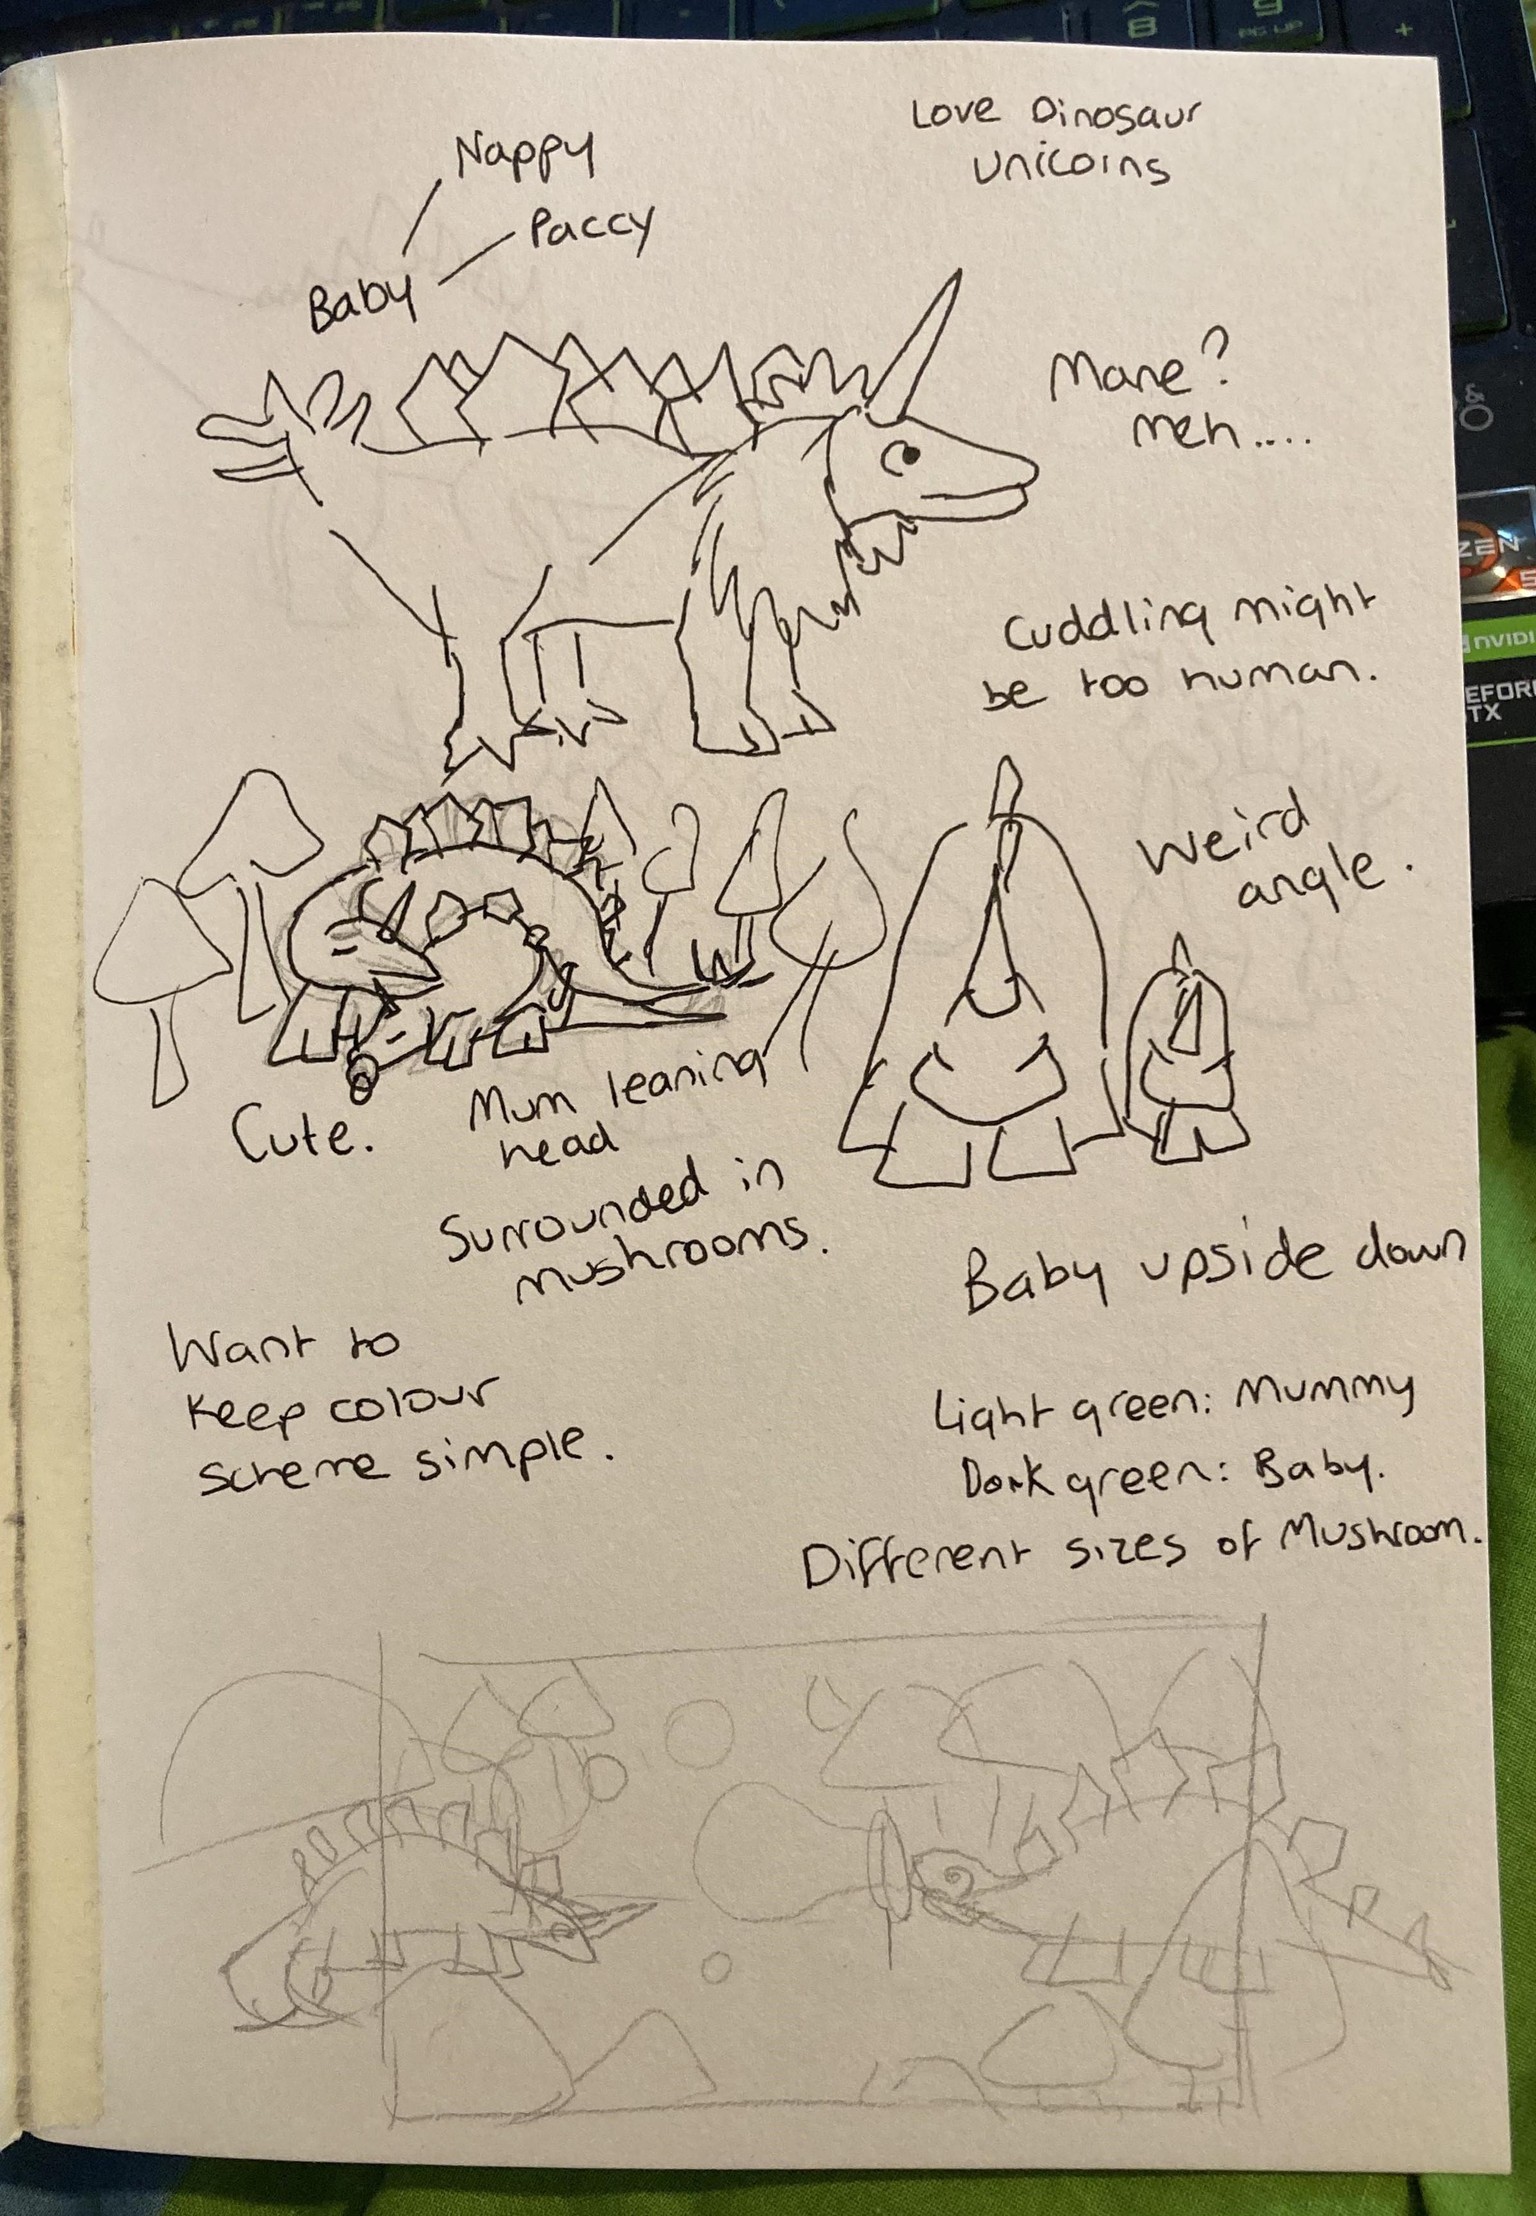 Love Dinosaur
Unicorns
Nappy
Paccy
Baby
Mane?
Meh....
Cuddling might
be too human.
Weird
angle.
Cute.
Mum leaning
head
Surrounded in
mushrooms.
Baby upside down
Want to
keep colour
scheme simple.
Light green: Mummy
Dark green: Baby.
Different sizes of Mushroom.
8
9
PG UP
+
&
ZEN
5
NVIDI
EFOR
TX